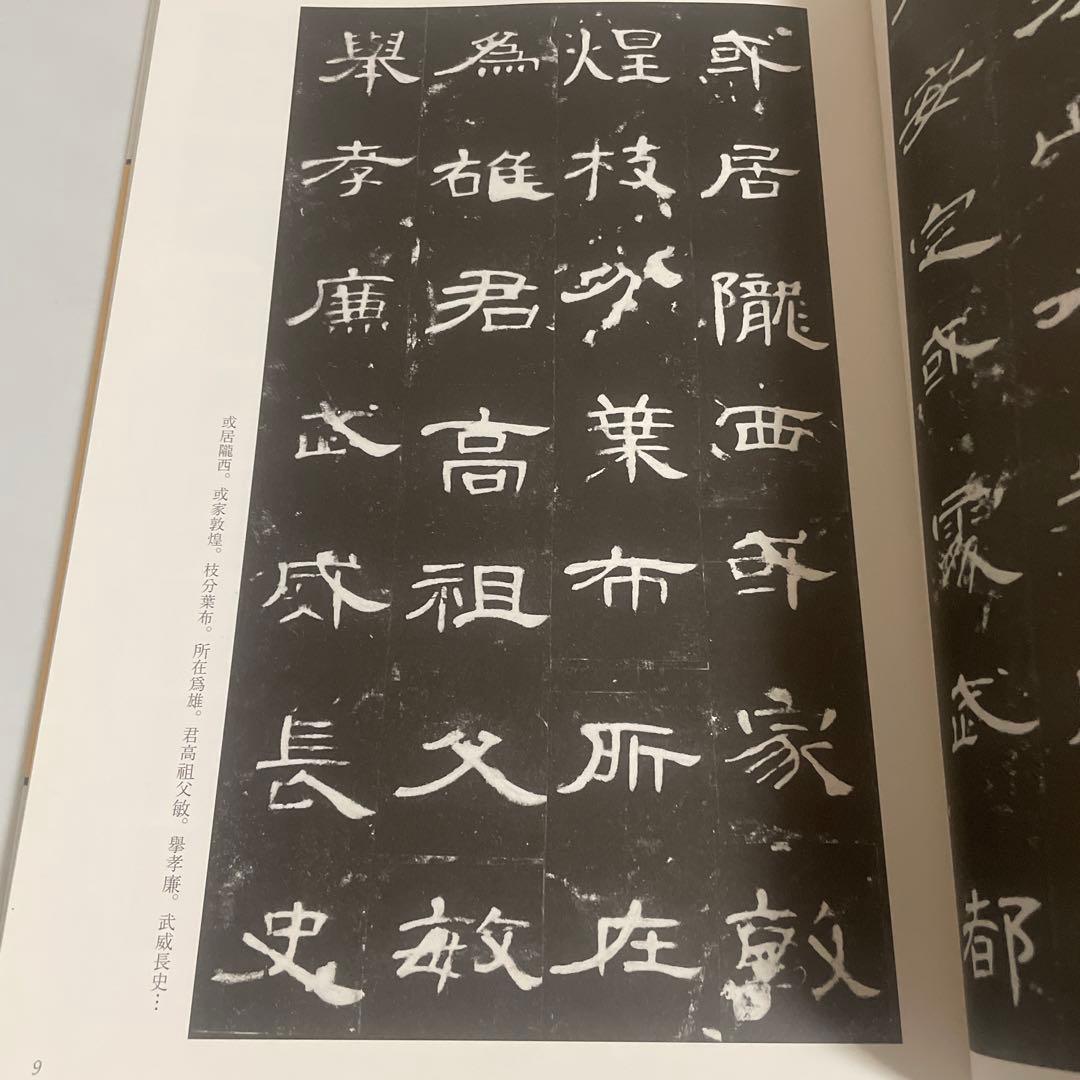 安定或處武都
或居隴西或家敦
煌枝分葉布所在
為雄君高祖父敏
舉孝廉武威長史
或居隴西。或家敦煌。枝分葉布。所在爲雄。君高祖父敏。擧孝廉。武威長史…
9